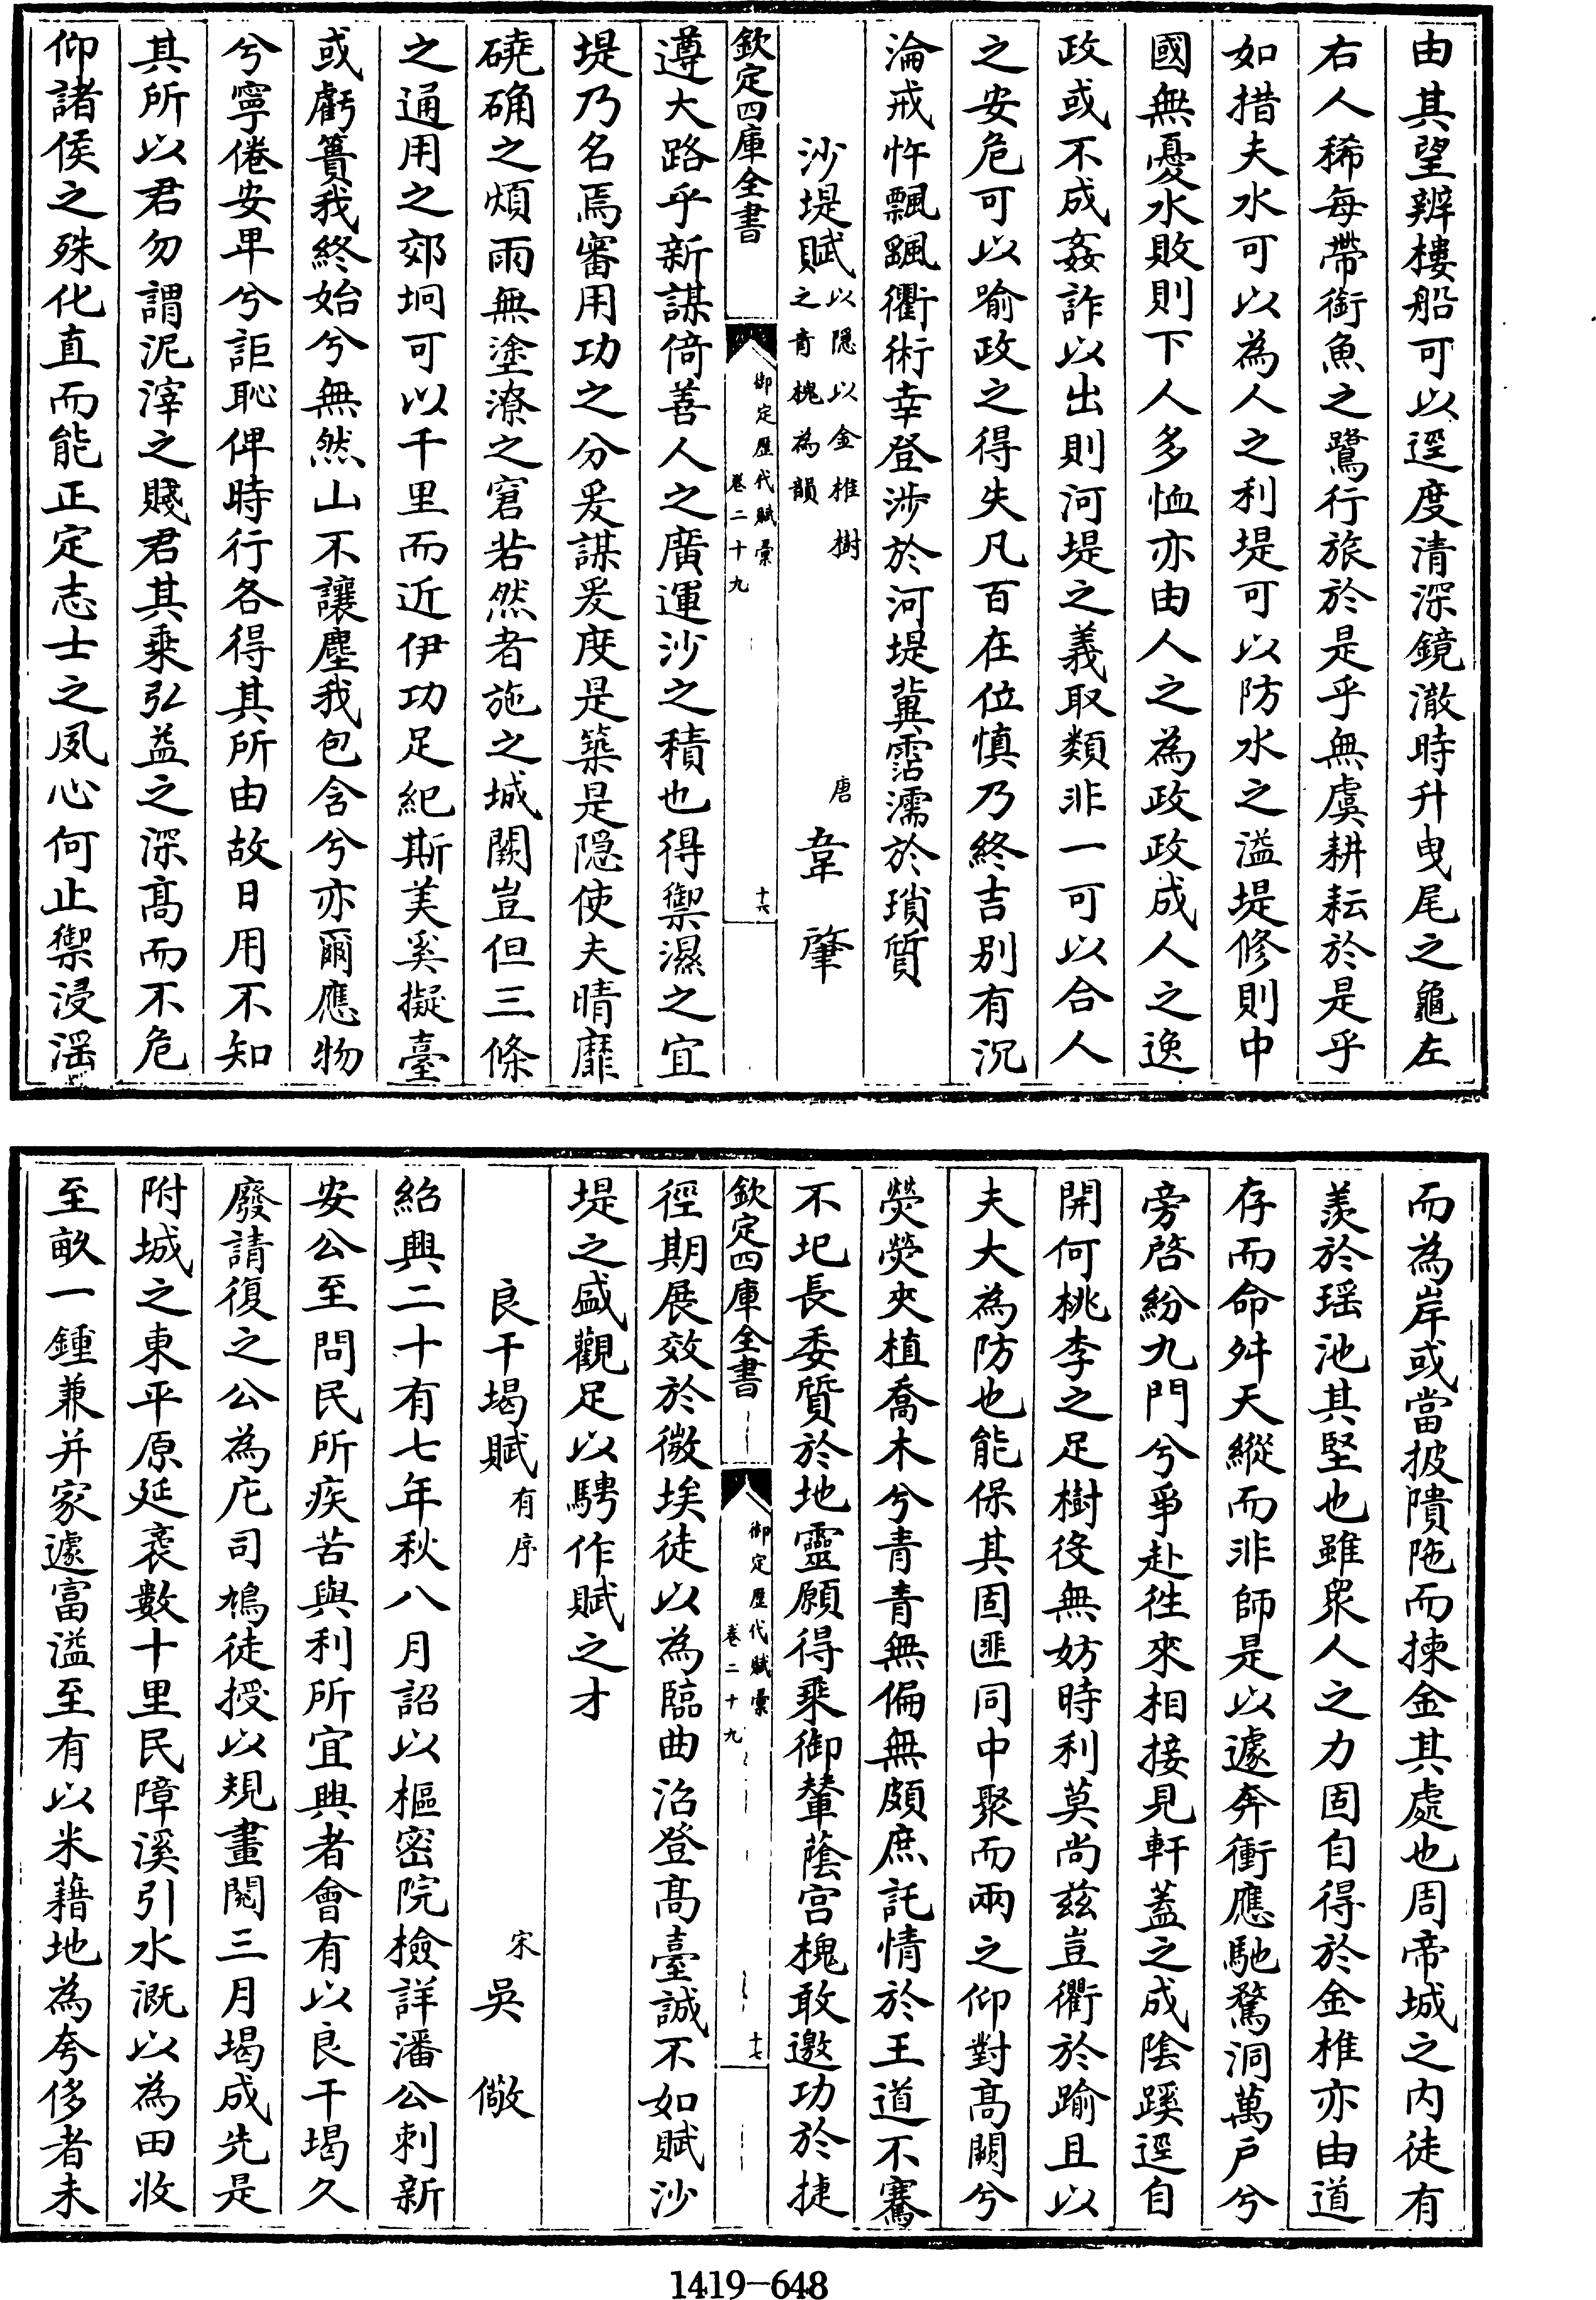 由其望辨樓船可以逕度清深鏡澈時升曳尾之龜左
右人稀每帶銜魚之鷺行旅於是乎無虞耕耘於是乎
如措夫水可以為人之利堤可以防水之溢堤修則中
國無憂水敗則下人多恤亦由人之為政政成人之逸
政或不成姦詐以出則河堤之義取類非一可以合人
之安危可以喻政之得失凡百在位慎乃終吉別有沉
淪戒忤飄颻衢術幸登涉於河堤冀霑濡於瑣質
沙堤賦以隱以金椎樹之青槐為韻 唐 韋肇
欽定四庫全書 御定歷代賦彙 卷二十九 十六
遵大路乎新謀倚善人之廣運沙之積也得禦濕之宜
堤乃名焉審用功之分爰謀爰度是築是隱使夫晴靡
磽确之煩雨無塗潦之窘若然者施之城闕豈但三條
之通用之郊坰可以千里而近伊功足紀斯美奚擬臺
或虧簣我終始兮無然山不讓塵我包含兮亦爾應物
兮寧倦安卑兮詎恥俾時行各得其所由故日用不知
其所以君勿謂泥滓之賤君其乗弘益之深髙而不危
仰諸侯之殊化直而能正定志士之夙心何止禦浸淫
而為岸或當披隤陁而揀金其處也周帝城之内徒有
羨於瑶池其堅也雖衆人之力固自得於金椎亦由道
存而命舛天縱而非師是以遽奔衝應馳騖洞萬戶兮
旁啓紛九門兮爭赴徃來相接見軒蓋之成陰蹊逕自
開何桃李之足樹役無妨時利莫尚兹豈衢於踰且以
夫大為防也能保其固匪同中聚而兩之仰對髙闕兮
熒熒夾植喬木兮青青無偏無頗庶託情於王道不騫
不圮長委質於地靈願得乗御輦蔭宫槐敢邀功於捷
欽定四庫全書 御定歷代賦彙 卷二十九 十七
徑期展效於微埃徒以為臨曲沼登髙臺誠不如賦沙
堤之盛觀足以騁作賦之才
良干堨賦有序 宋 吳儆
紹興二十有七年秋八月詔以樞密院檢詳潘公刺新
安公至問民所疾苦與利所宜興者會有以良干堨久
廢請復之公為庀司鳩徒授以規畫閱三月堨成先是
附城之東平原延袤數十里民障溪引水溉以為田收
至畝一鍾兼并家遽富溢至有以米藉地為夸侈者未
1419-648